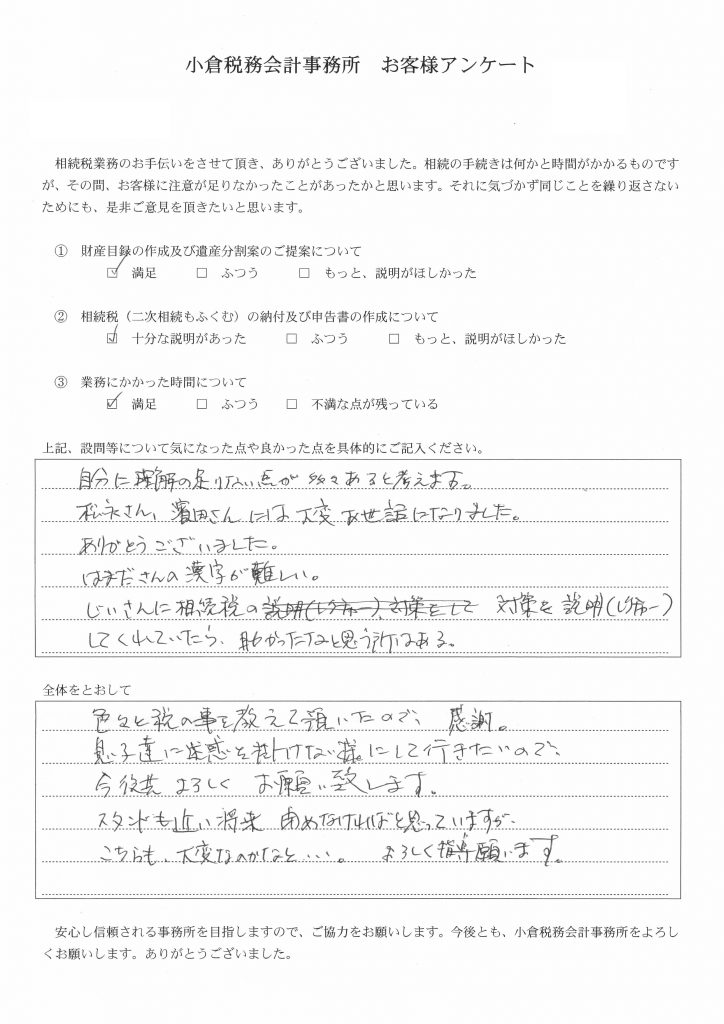 小倉税務会計事務所　お客様アンケート
相続税業務のお手伝いをさせて頂き、ありがとうございました。相続の手続きは何かと時間がかかるものです
が、その間、お客様に注意が足りなかったことがあったかと思います。それに気づかず同じことを繰り返さない
ためにも、是非ご意見を頂きたいと思います。
① 財産目録の作成及び遺産分割案のご提案について
☑ 満足　□ ふつう　□ もっと、説明がほしかった
② 相続税（二次相続もふくむ）の納付及び申告書の作成について
☑ 十分な説明があった　□ ふつう　□ もっと、説明がほしかった
③ 業務にかかった時間について
☑ 満足　□ ふつう　□ 不満な点が残っている
上記、設問等について気になった点や良かった点を具体的にご記入ください。
自分に理解の足りない点が多々あると考えます。
松永さん、濱田さんには大変お世話になりました。
ありがとうございました。
はまださんの漢字が難しい。
じいさんに相続税の説明(レクチャー)、対策をして 対策を説明(レクチャー)
してくれていたら、助かったなと思う所はある。
全体をとおして
色々と税の事を教えて頂いたので、感謝。
息子達に迷惑を掛けない様にして行きたいので、
今後共よろしくお願い致します。
スタンドも近い将来 閉めなければと思っていますが、
こちらも、大変なのかなと…。よろしく指導願います。
安心し信頼される事務所を目指しますので、ご協力をお願いします。今後とも、小倉税務会計事務所をよろし
くお願いします。ありがとうございました。